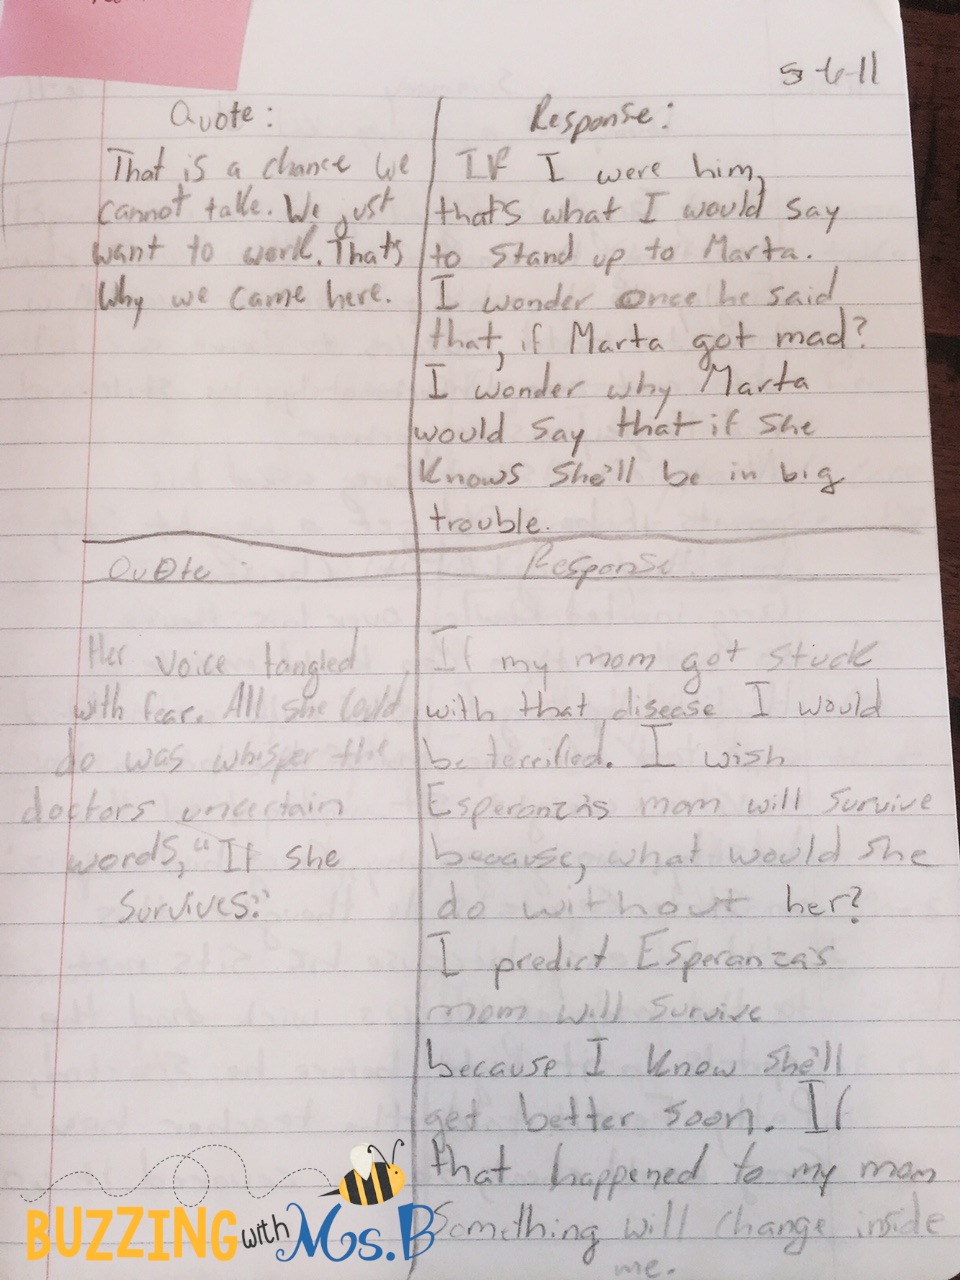 5-6-11
Quote:
That is a chance we
cannot take. We just
want to work. That's
Why we came here.
Response:
If I were him,
that's what I would say
to stand up to Marta.
I wonder once he said
that, if Marta got mad?
I wonder why Marta
would say that if she
knows she'll be in big
trouble.
Quote:
Her voice tangled
with fear. All she could
do was whisper the
doctors uncertain
words, "If she
survives."
Response
If my mom got stuck
with that disease I would
be terrified. I wish
Esperanza's mom will survive
because, what would she
do without her?
I predict Esperanza's
mom will survive
because I know she'll
get better soon. If
that happened to my mom
Something will change inside
me.
BUZZING with Ms.B